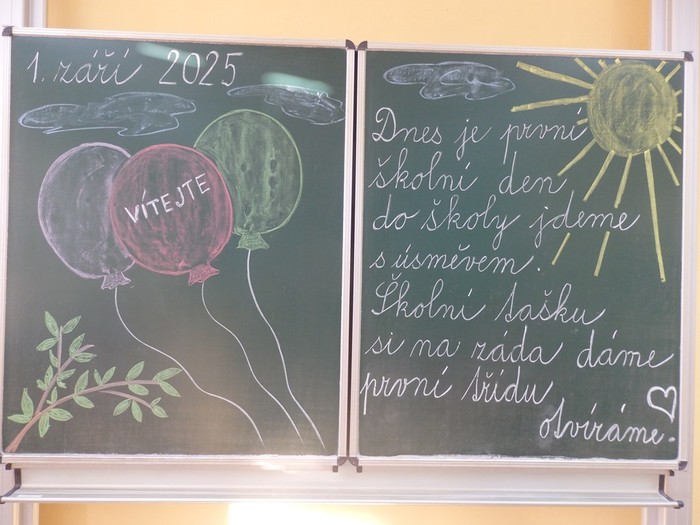 1. září 2025
VÍTEJTE
Dnes je první
školní den
do školy jdeme
s úsměvem.
Školní tašku
si na záda dáme
první třídu
otvíráme!